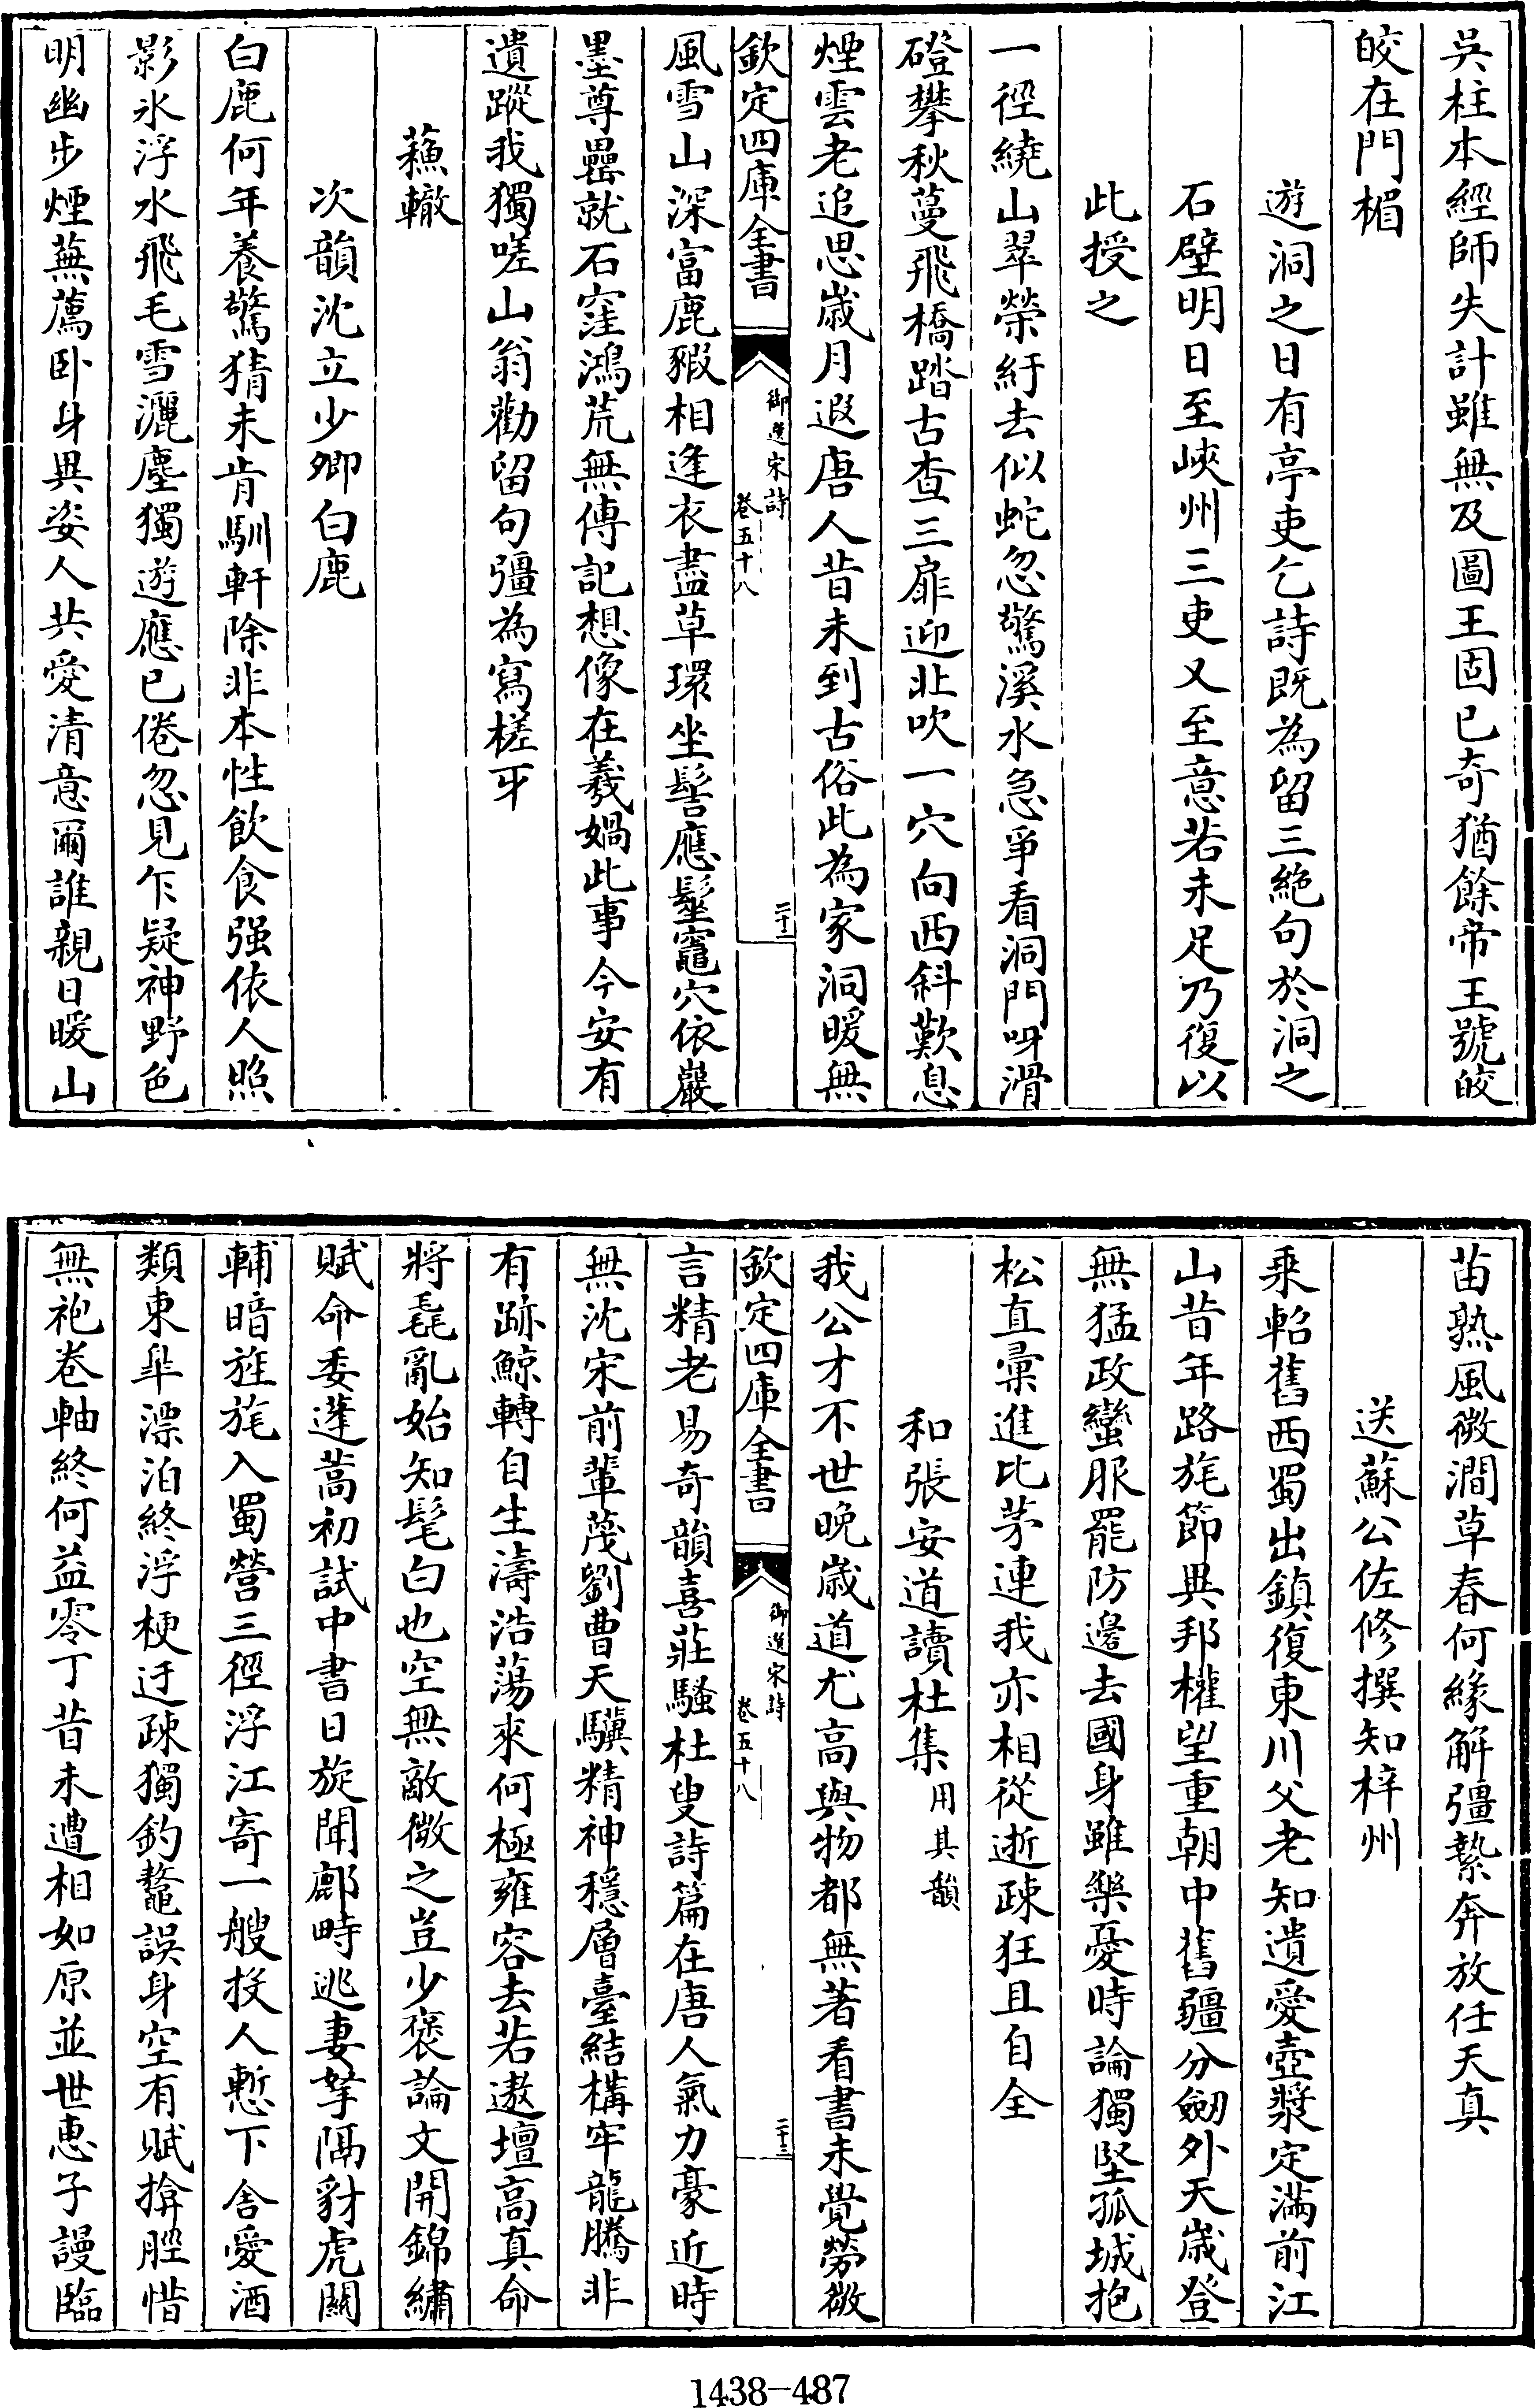 吳柱本經師失計雖無及圖王固已奇猶餘帝王號皎
皎在門楣
遊洞之日有亭吏乞詩既為留三絕句於洞之
石壁明日至峽州三吏又至意若未足乃復以
此授之
一徑繞山翠縈紆去似蛇忽驚溪水急爭看洞門呀滑
磴攀秋蔓飛橋踏古查三扉迎北吹一穴向西斜歎息
煙雲老追思歲月遐唐人昔未到古俗此為家洞暖無
欽定四庫全書
御選宋詩
卷五十八
二十二
風雪山深富鹿豭相逢衣盡草環坐髻應髽竈穴依巖
墨尊罍就石窪鴻荒無傳記想像在羲媧此事今安有
遺蹤我獨嗟山翁勸留句彊為寫槎牙
蘓轍
次韻沈立少卿白鹿
白鹿何年養驚猜未肯馴軒除非本性飲食强依人照
影氷浮水飛毛雪灑塵獨遊應已倦忽見乍疑神野色
明幽步煙蕪薦卧身異姿人共愛清意爾誰親日暖山
苗熟風微澗草春何緣解彊縶奔放任天真
送蘇公佐修撰知梓州
乘軺舊西蜀出鎮復東川父老知遺愛壺漿定滿前江
山昔年路旄節異邦權望重朝中舊疆分劒外天歲登
無猛政蠻服罷防邊去國身雖樂憂時論獨堅孤城抱
松直彙進比茅連我亦相從逝疎狂且自全
和張安道讀杜集用其韻
我公才不世晚歲道尤高與物都無著看書未覺勞微
欽定四庫全書
御選宋詩
卷五十八
二十三
言精老易奇韻喜莊騷杜叟詩篇在唐人氣力豪近時
無沈宋前輩蔑劉曹天驥精神穩層臺結構牢龍騰非
有跡鯨轉自生濤浩蕩來何極雍容去若遨壇高真命
將毳亂始知髦白也空無敵微之豈少褒論文開錦繡
賦命委蓬蒿初試中書日旋聞鄜畤逃妻孥隔豺虎關
輔暗旌旄入蜀營三徑浮江寄一艘投人慙下舍愛酒
類東臯漂泊終浮梗迂疎獨釣鼇誤身空有賦揜脛惜
無袍卷軸終何益零丁昔未遭相如原並世惠子謾臨
1438-487